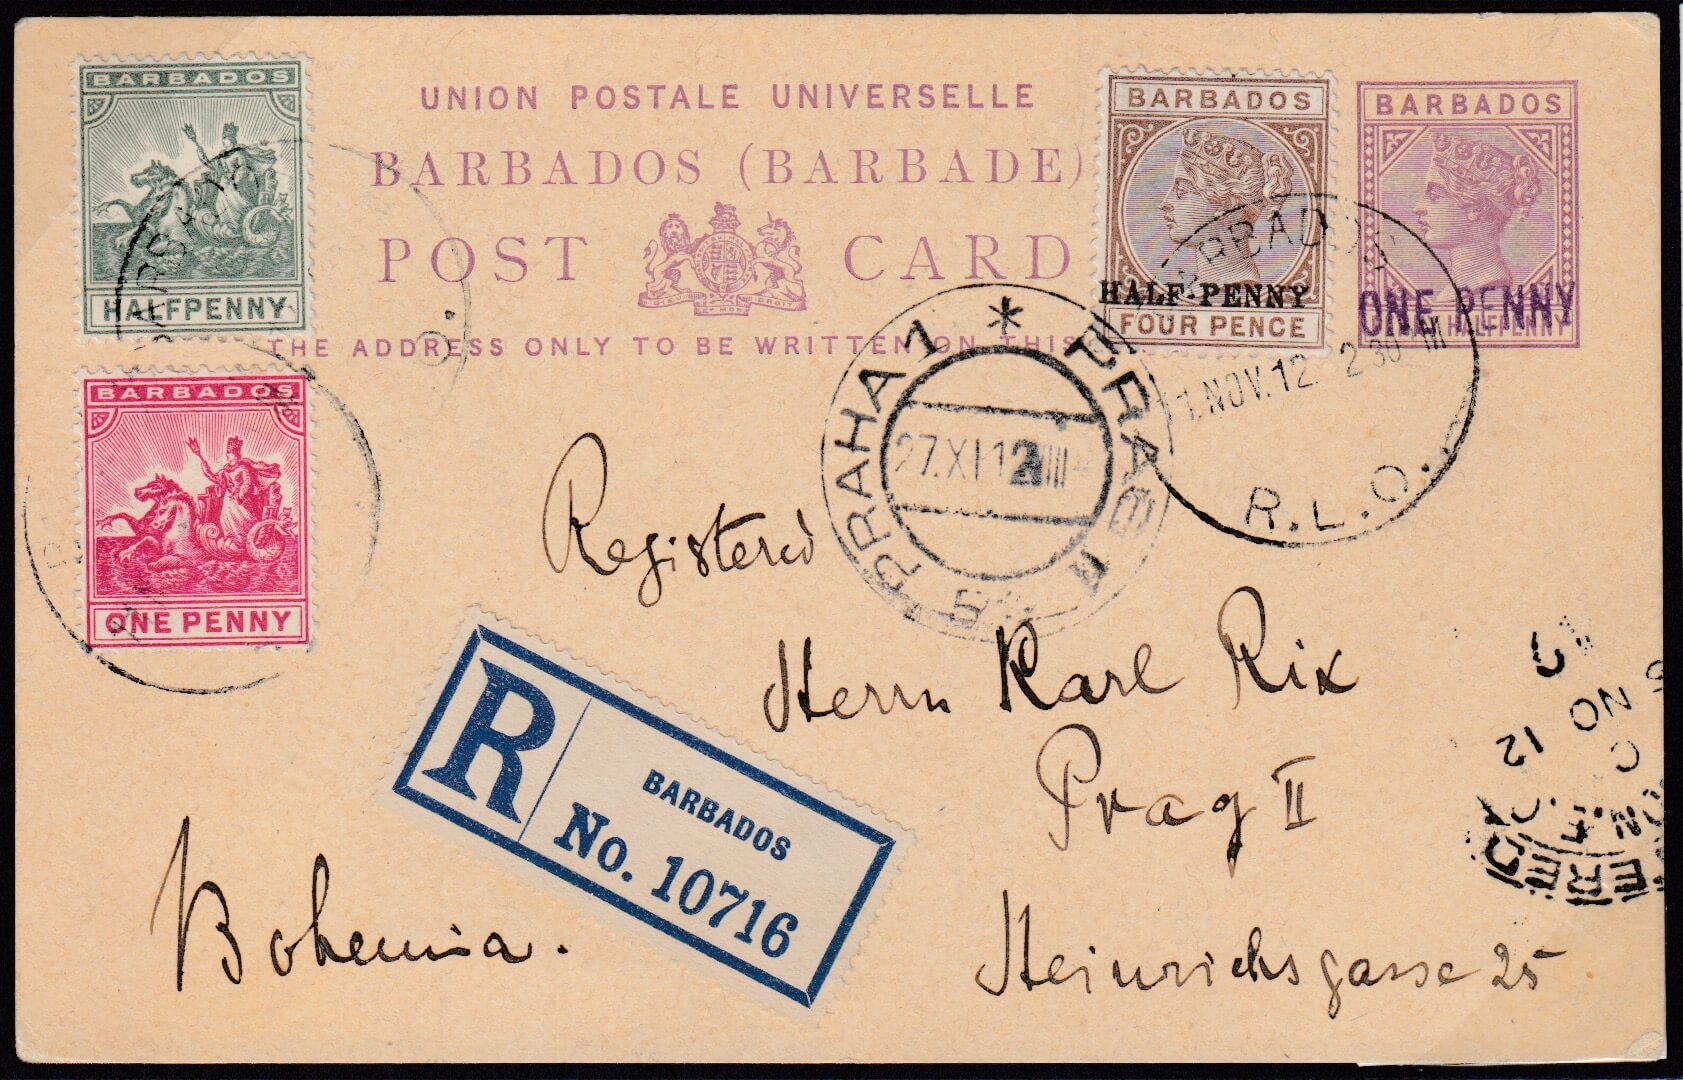 UNION POSTALE UNIVERSELLE
BARBADOS (BARBADE)
POST CARD
THE ADDRESS ONLY TO BE WRITTEN ON THIS
BARBADOS
HALFPENNY
BARBADOS
ONE PENNY
BARBADOS
HALF-PENNY
FOUR PENCE
BARBADOS
ONE PENNY
HALFPENNY
BARBADOS
1.NOV.12. 2 30
R.L.O.
* PRAHA 1
27.XI.12
PRAG
Registered
Herrn Karl Rix
Prag II
Heinrichsgasse 25
Bohemia.
R
BARBADOS
No. 10716
NO 12